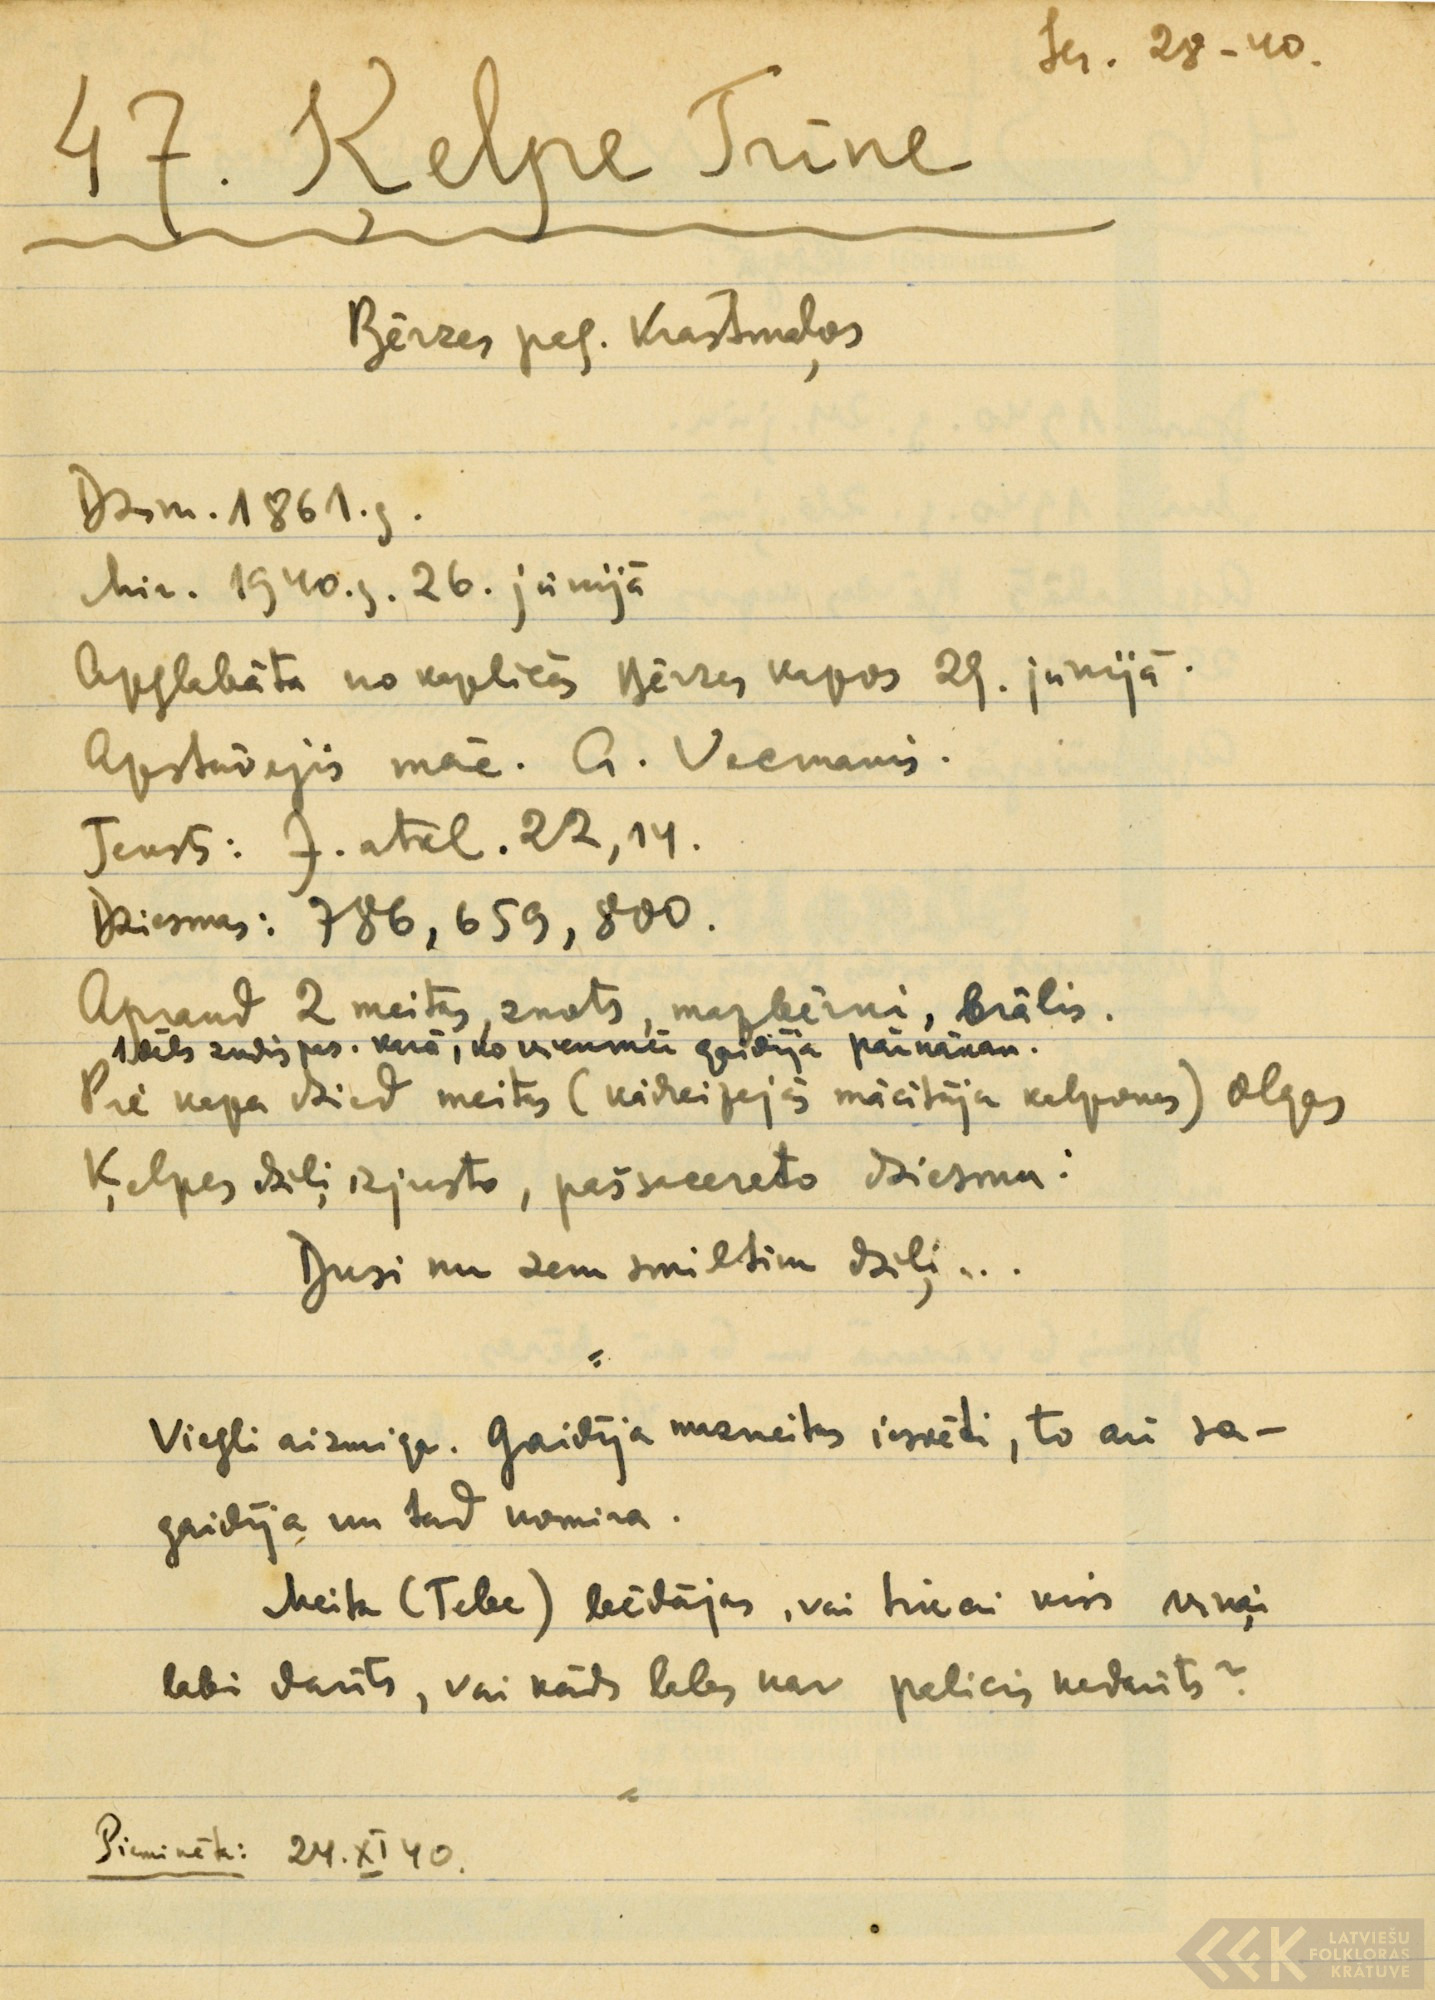 28-40.
47. Ķelpe Trīne
Bērzes pag. Krastmaļos
Dzim. 1861. g.
Mir. 1940. g. 26. jūnijā
Apglabāta no kapličas Bērzes kapos 29. jūnijā.
Apstāvejis māc. G. Vecmanis.
Teksts: J. atkl. 22, 14.
Dziesmas: 786, 659, 800.
Apraud 2 meitas, znots, mazbērni, brālis.
1 dēls zudis pas. karā, ko vienmēr gaidīja pārnākam.
Pie kapa dzied meitas (kādreizejās mācītāja kalpones) Olgas
Ķelpes dziļi izjusto, pašsacereto dziesmu:
Dusi nu zem smiltim dziļi...
Viegli aizmiga. Gaidīja mazmeitas iesvēti, to arī sa-
gaidīja un tad nomira.
Meita (Tebe) bēdājas, vai tikai viss viņai
labi darīts, vai kāds labs nav palicis nedarīts?
Pieminēta: 24. XI 40.
LATVIEŠU
FOLKLORAS
KRĀTUVE